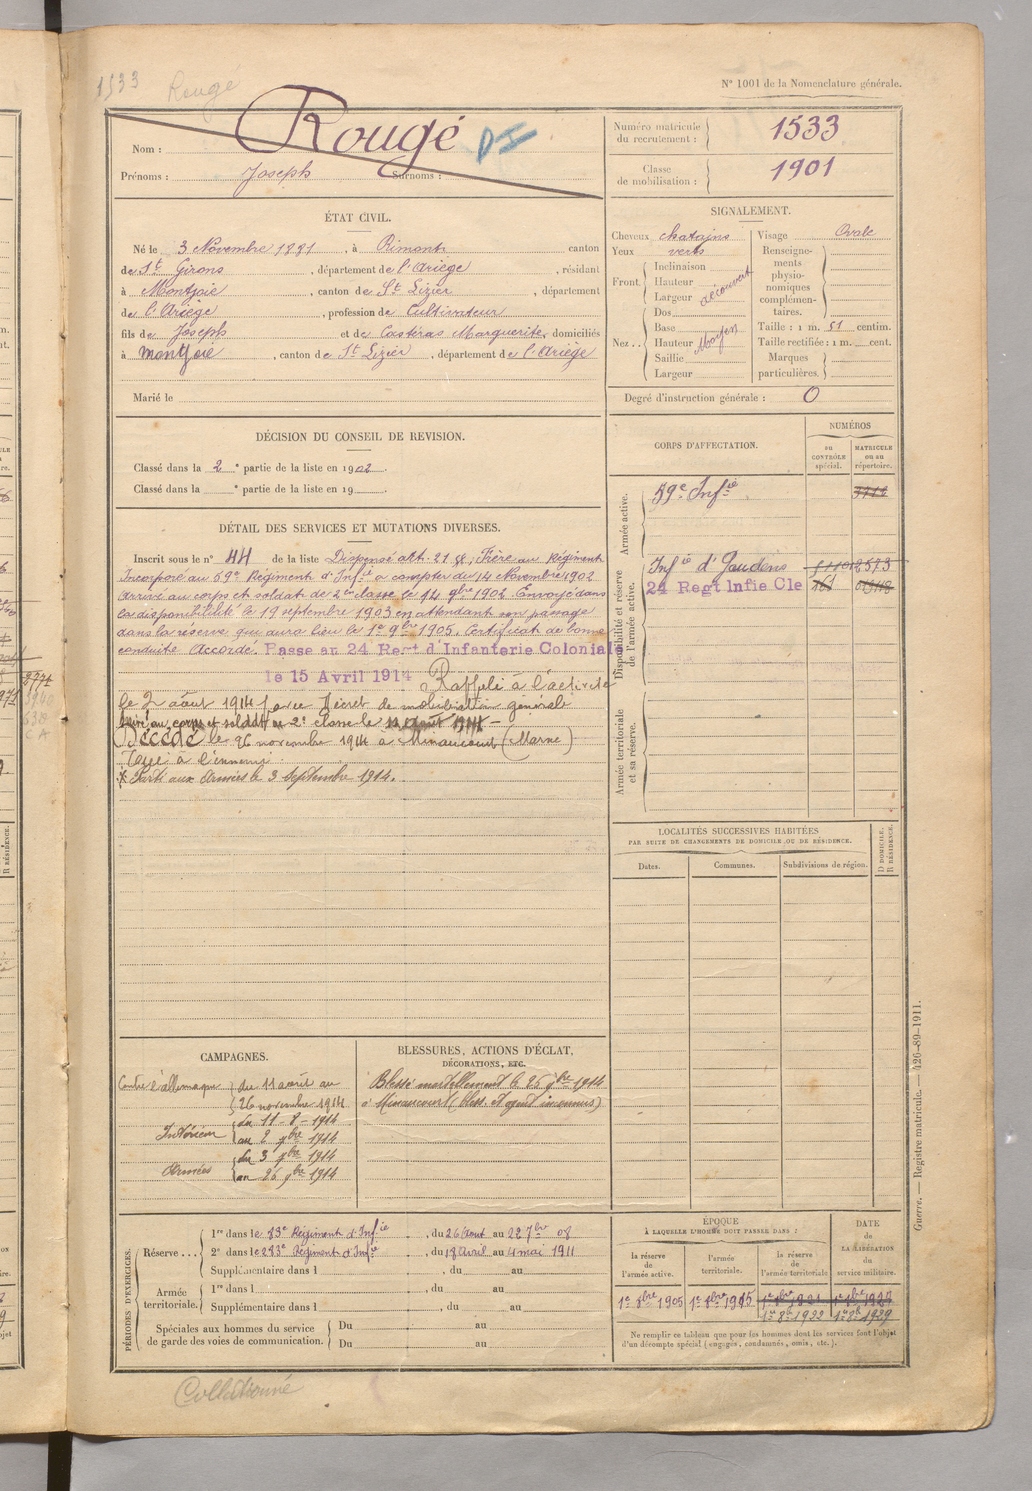 1533 Rougé
N° 1001 de la Nomenclature générale.
Nom : Rougé
Prénoms : Joseph Surnoms :
Numéro matricule du recrutement : 1533
Classe de mobilisation : 1901
ÉTAT CIVIL.
Né le 3 Novembre 1881, à Rimont canton
de St Girons, département de l'Ariège, résidant
à Montjoie, canton de St Lizier, département
de l'Ariège, profession de Cultivateur
fils de Joseph et de Castéras Marguerite, domiciliés
à Montjoie, canton de St Lizier, département de l'Ariège
Marié le
SIGNALEMENT.
Cheveux chatains
Yeux verts
Front. Inclinaison
Hauteur
Largeur découvert
Nez.. Dos
Base
Hauteur Moyen
Saillie
Largeur
Visage Ovale
Renseignements physionomiques complémentaires.
Taille : 1 m. 51 centim.
Taille rectifiée : 1 m. cent.
Marques particulières.
Degré d'instruction générale : 0
DÉCISION DU CONSEIL DE REVISION.
Classé dans la 2e partie de la liste en 1902.
Classé dans la e partie de la liste en 19
CORPS D'AFFECTATION.
NUMÉROS
au CONTRÔLE spécial.
MATRICULE ou au répertoire.
Armée active.
59e Infie
Disponibilité et réserve de l'armée active.
Infie d' Gaudens
24 Regt Infie Cle
Armée territoriale et sa réserve.
DÉTAIL DES SERVICES ET MUTATIONS DIVERSES.
Inscrit sous le n° 44 de la liste Dispensé art. 21 Frère au Régiment
Incorporé au 59e Régiment d'Infie à compter du 14 Novembre 1902
Arrivé au corps et soldat de 2me classe le 14 9bre 1902. Envoyé dans
la disponibilité le 19 septembre 1903 en attendant son passage
dans la réserve qui aura lieu le 1er 9bre 1905. Certificat de bonne
conduite Accordé. Passe au 24 Regt d'Infanterie Coloniale
le 15 Avril 1914 Rappelé à l'activité
le 2 août 1914 Décret de mobilisation générale
Arrivé au corps et soldat de 2e classe le 11 Août 1914 -
Décédé le 26 novembre 1914 à Minaucourt (Marne)
Tué à l'ennemi.
Parti aux Armées le 3 Septembre 1914.
LOCALITÉS SUCCESSIVES HABITÉES
PAR SUITE DE CHANGEMENTS DE DOMICILE OU DE RÉSIDENCE.
Dates.
Communes.
Subdivisions de région.
D DOMICILE. R RÉSIDENCE.
CAMPAGNES.
Contre l'Allemagne du 11 août au
26 novembre 1914
Intérieur du 11-8-1914
au 2 7bre 1914
Armées du 3 7bre 1914
au 26 9bre 1914
BLESSURES, ACTIONS D'ÉCLAT,
DÉCORATIONS, ETC.
Blessé mortellement le 26 9bre 1914
à Minaucourt (bless. et agent inconnus)
PÉRIODES D'EXERCICES.
Réserve... 1re dans le 83e Régiment d'Infie, du 26 Aout au 22 7bre 08
2e dans le 283e Régiment d'Infie, du 18 Avril au 4 mai 1911
Supplémentaire dans l , du au
Armée territoriale. 1re dans l , du au
Supplémentaire dans l , du au
Spéciales aux hommes du service de garde des voies de communication. Du au
Du au
ÉPOQUE
À LAQUELLE L'HOMME DOIT PASSER DANS :
la réserve de l'armée active.
l'armée territoriale.
la réserve de l'armée territoriale
DATE de LA LIBÉRATION du service militaire.
1er 9bre 1905
1er 8bre 1922
1er 8bre 1929
Ne remplir ce tableau que pour les hommes dont les services font l'objet
d'un décompte spécial (engagés, condamnés, omis, etc.).
Guerre. — Registre matricule. — 426-89-1911.
Collationné